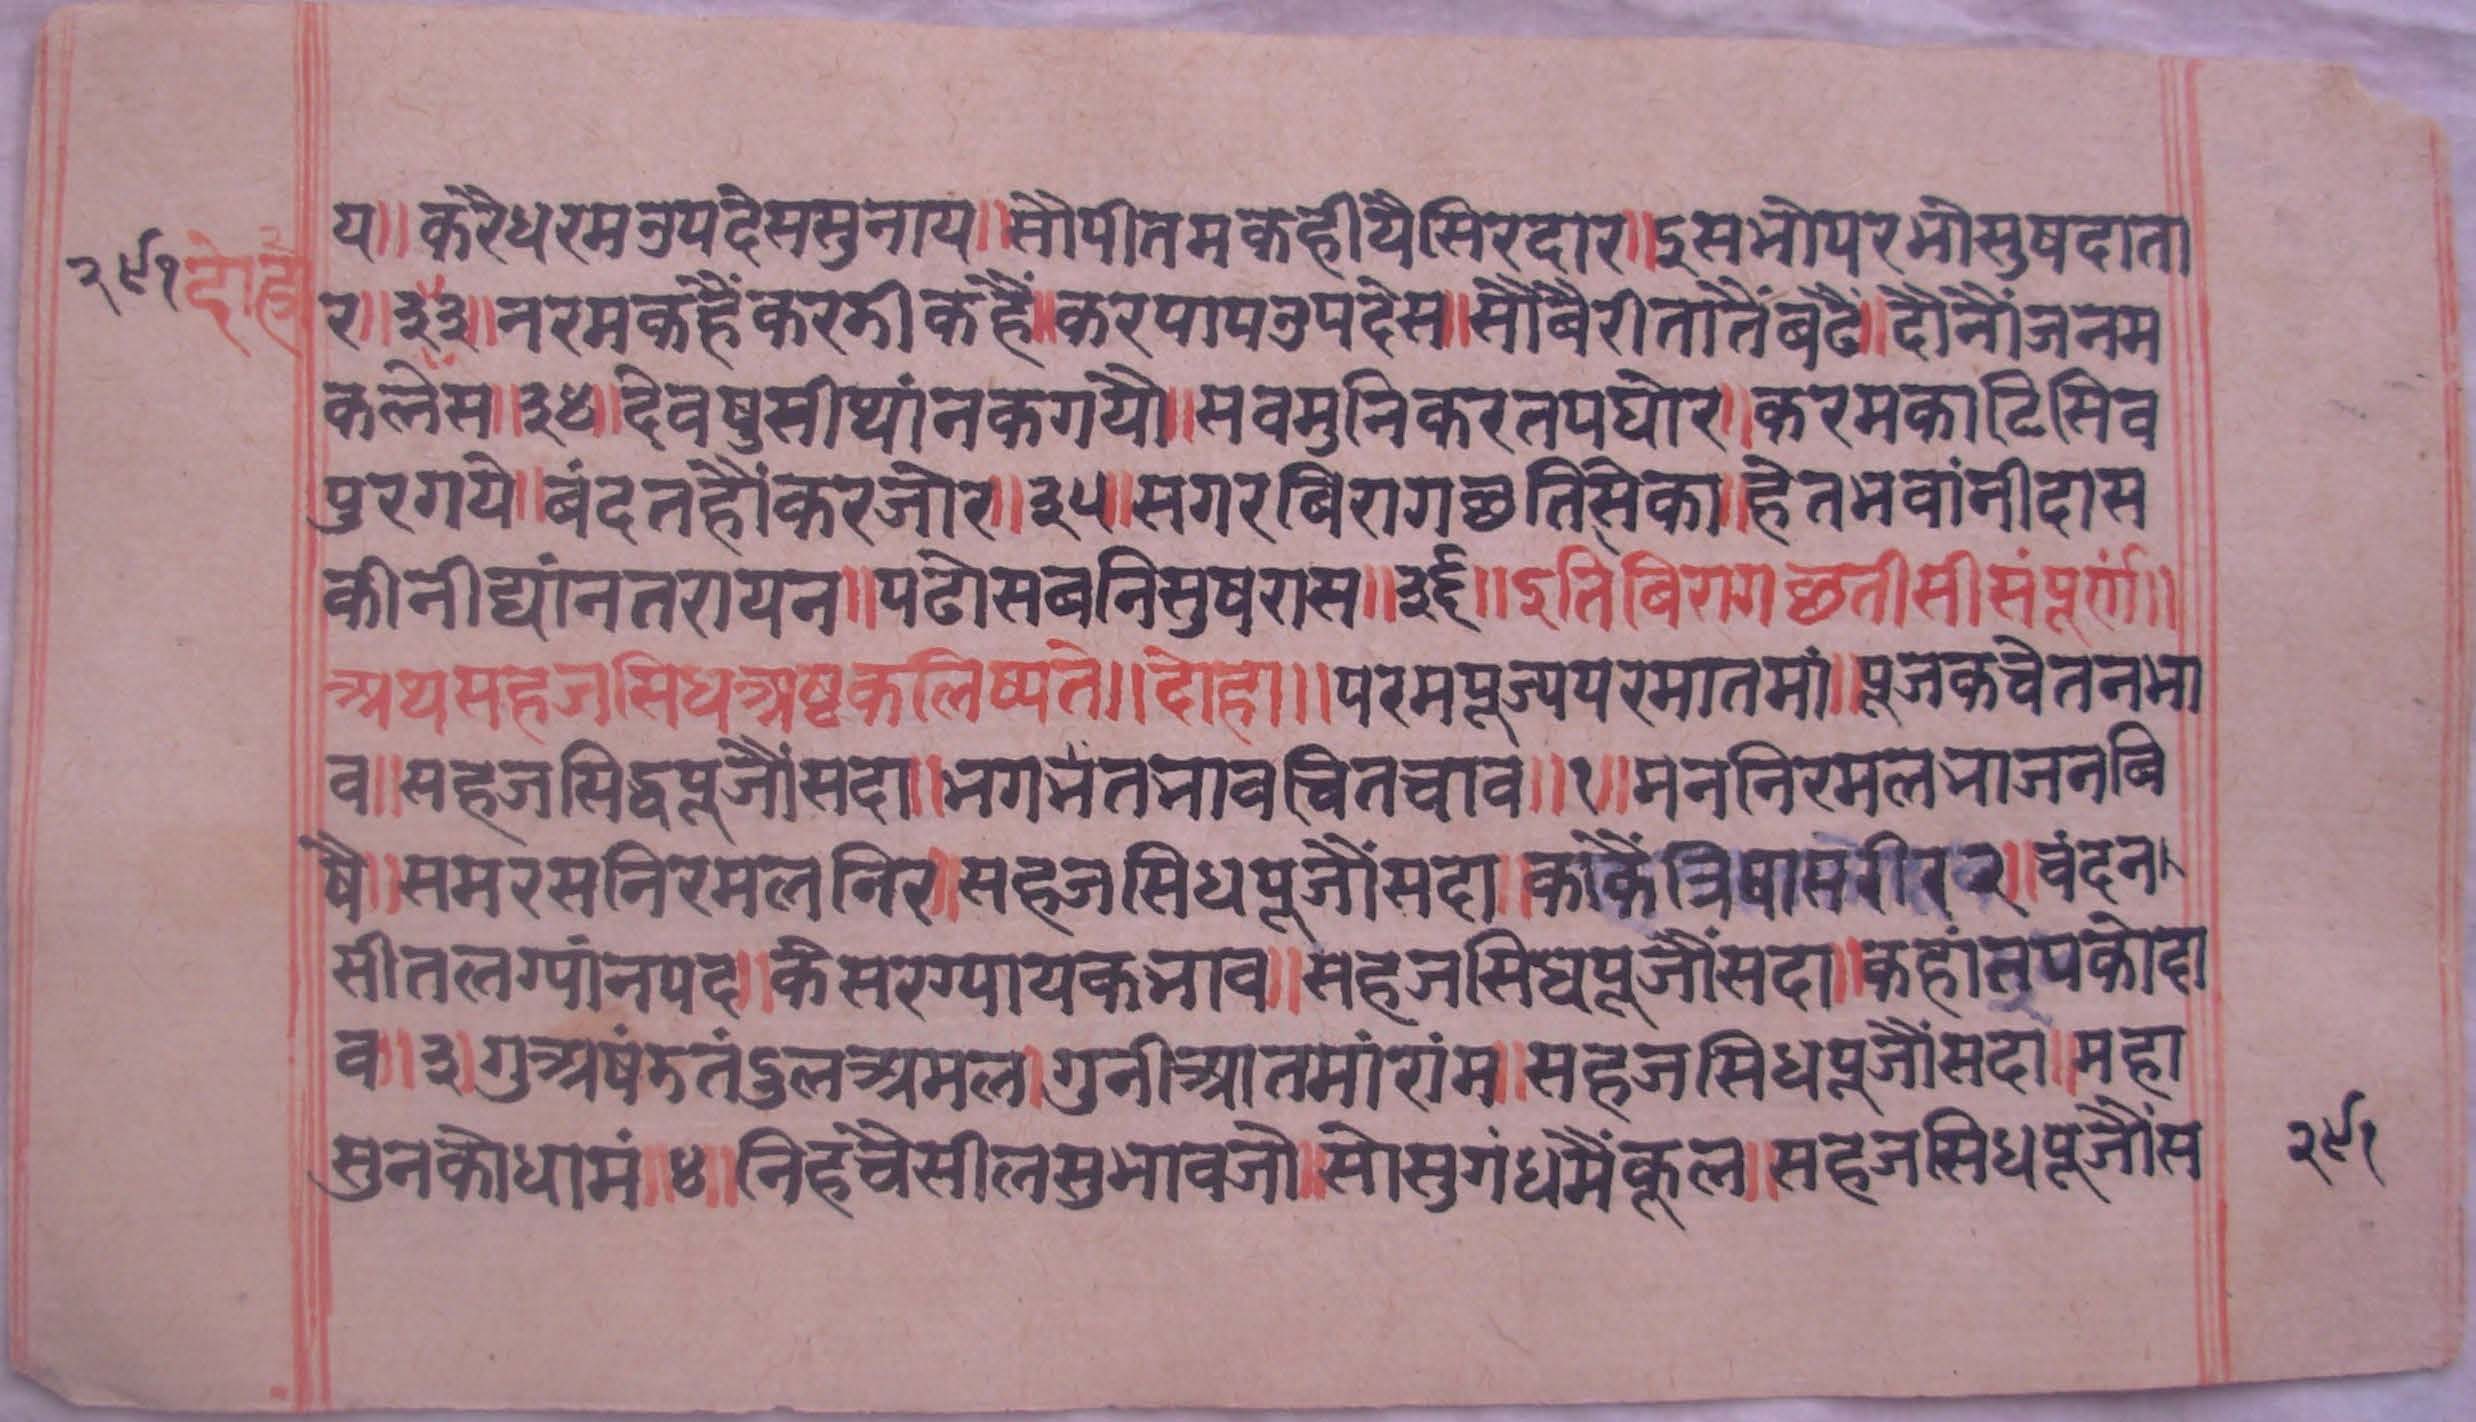 य॥ करैधरमउपदेससुनाय॥सौपीतमकहीयैसिरदार॥इसभोपरभौसुषदाता
२९१ दोहा
र॥३३॥नरमकहैंकरझीकहैं॥करपापउपदेस॥सौबैरीतातैंबढैं॥दौनौंजनम
कलेस॥३४॥देवषुसीथांनकगयौ॥सवमुनिकरतपघोर॥करमकाटिसिव
पुरगये॥बंदतहौंकरजोर॥३५॥सगरबिरागछतिसिका॥हेतभवांनीदास
कीनीद्यांनतरायन॥पढोसबनिसुषरास॥३६॥इतिबिरागछतीसीसंपूर्ण॥
अथसहजसिधअष्टकलिष्यते॥दोहा॥परमपूज्यपरमातमां॥पूजकचेतनभा
व॥सहजसिद्धपूजौंसदा॥भगमंतभावचितचाव॥१॥मननिरमलभाजनबि
षै॥समरसनिरमलनिर॥सहजसिधपूजौंसदा॥काकैंत्रिषासरीर२॥चंदन
सीतलग्यांनपद॥केसरग्यायकभाव॥सहजसिधपूजौंसदा॥कहांतपकोदा
व॥३॥गुअषंडतंडुलअमल॥गुनीआतमांरांम॥सहजसिधपूजौंसदा॥महा
सुनकोधामं॥४॥निहंचैसीलसुभावजो॥सोसुगंधमैंकूल॥सहजसिधपूजौंस
२९१